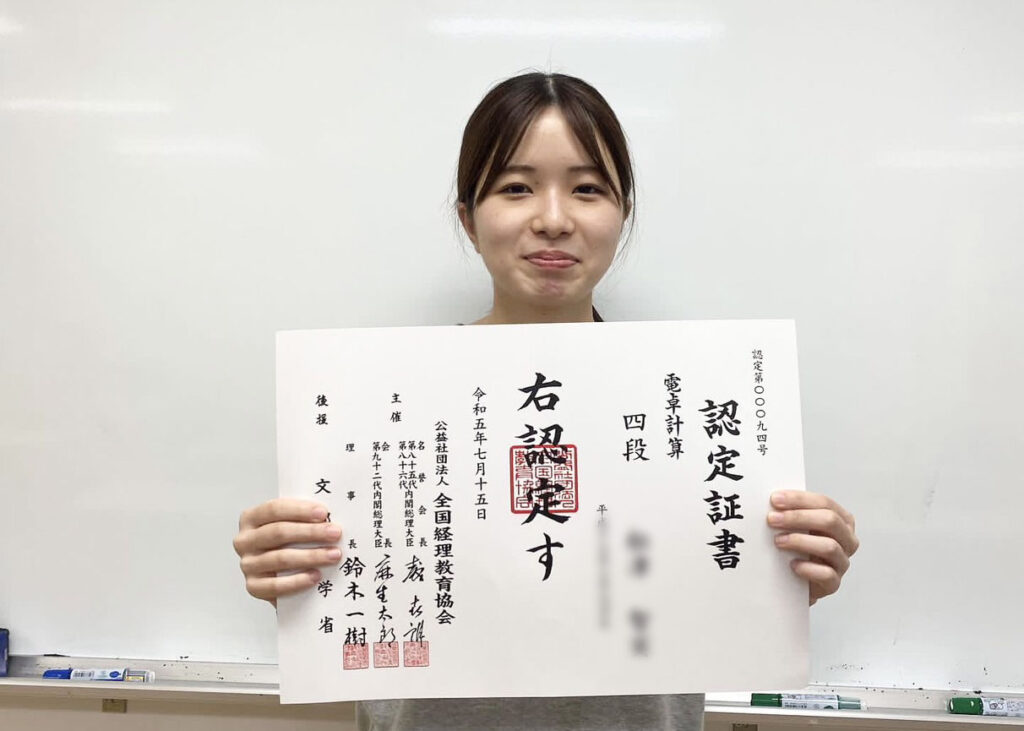 認定第〇〇〇九四号
認定証書
電卓計算
四段
平
右認定す
令和五年七月十五日
公益社団法人 全国経理教育協会
主催
名誉会長
第八十五代
第八十六代内閣総理大臣
会長
第九十二代内閣総理大臣 麻生太郎
理事長 鈴木一樹
後援 文 学省